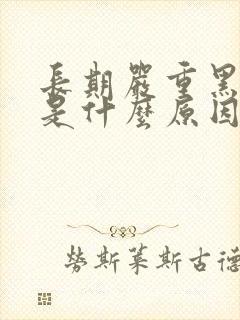 長期嚴重黑
是什麼原因
勞斯萊斯古德